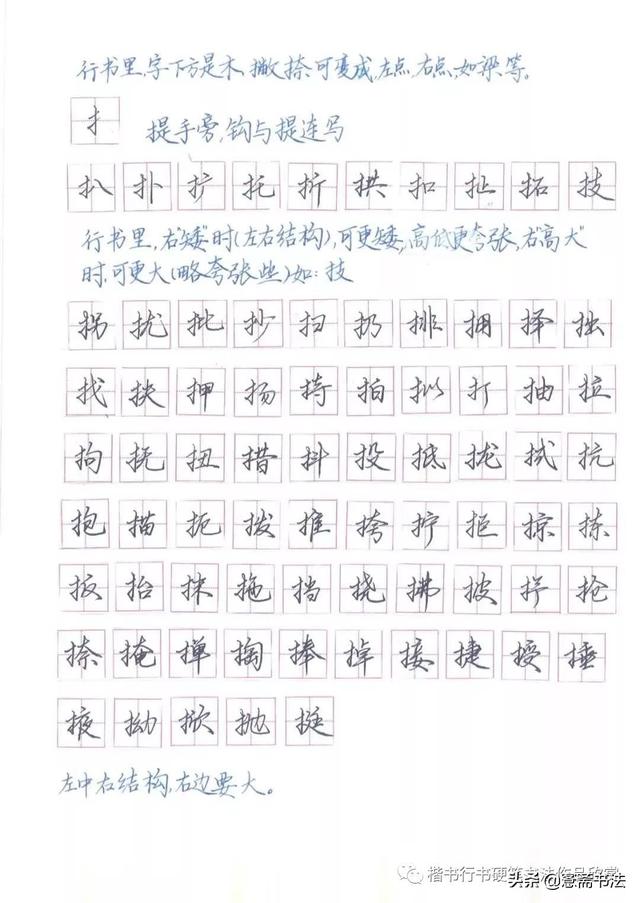 行书里,字下方是木,撇捺可变成,左点,右点,如:梁等。
扌
提手旁,钩与提连写
扒 扑 扩 托 折 拱 扣 扯 拓 技
行书里,右"矮"时(左右结构),可更矮,高低更夸张,右"高大"
时,可更大(略夸张些)如:技
拐 扰 批 抄 扫 扔 排 拥 择 拙
找 抉 押 扬 持 拍 拟 打 抽 拉
拘 抚 扭 措 抖 投 抵 拢 拭 抗
抱 描 扼 拨 推 挎 拧 拒 掠 拣
扳 抬 抹 拖 挡 挠 拂 披 抒 抢
捺 掩 掸 掏 捧 掉 接 捷 授 捶
掖 拗 掀 抛 挺
左中右结构,右边要大。
楷书行书硬笔书法作品欣赏
头条 @慧斋书法